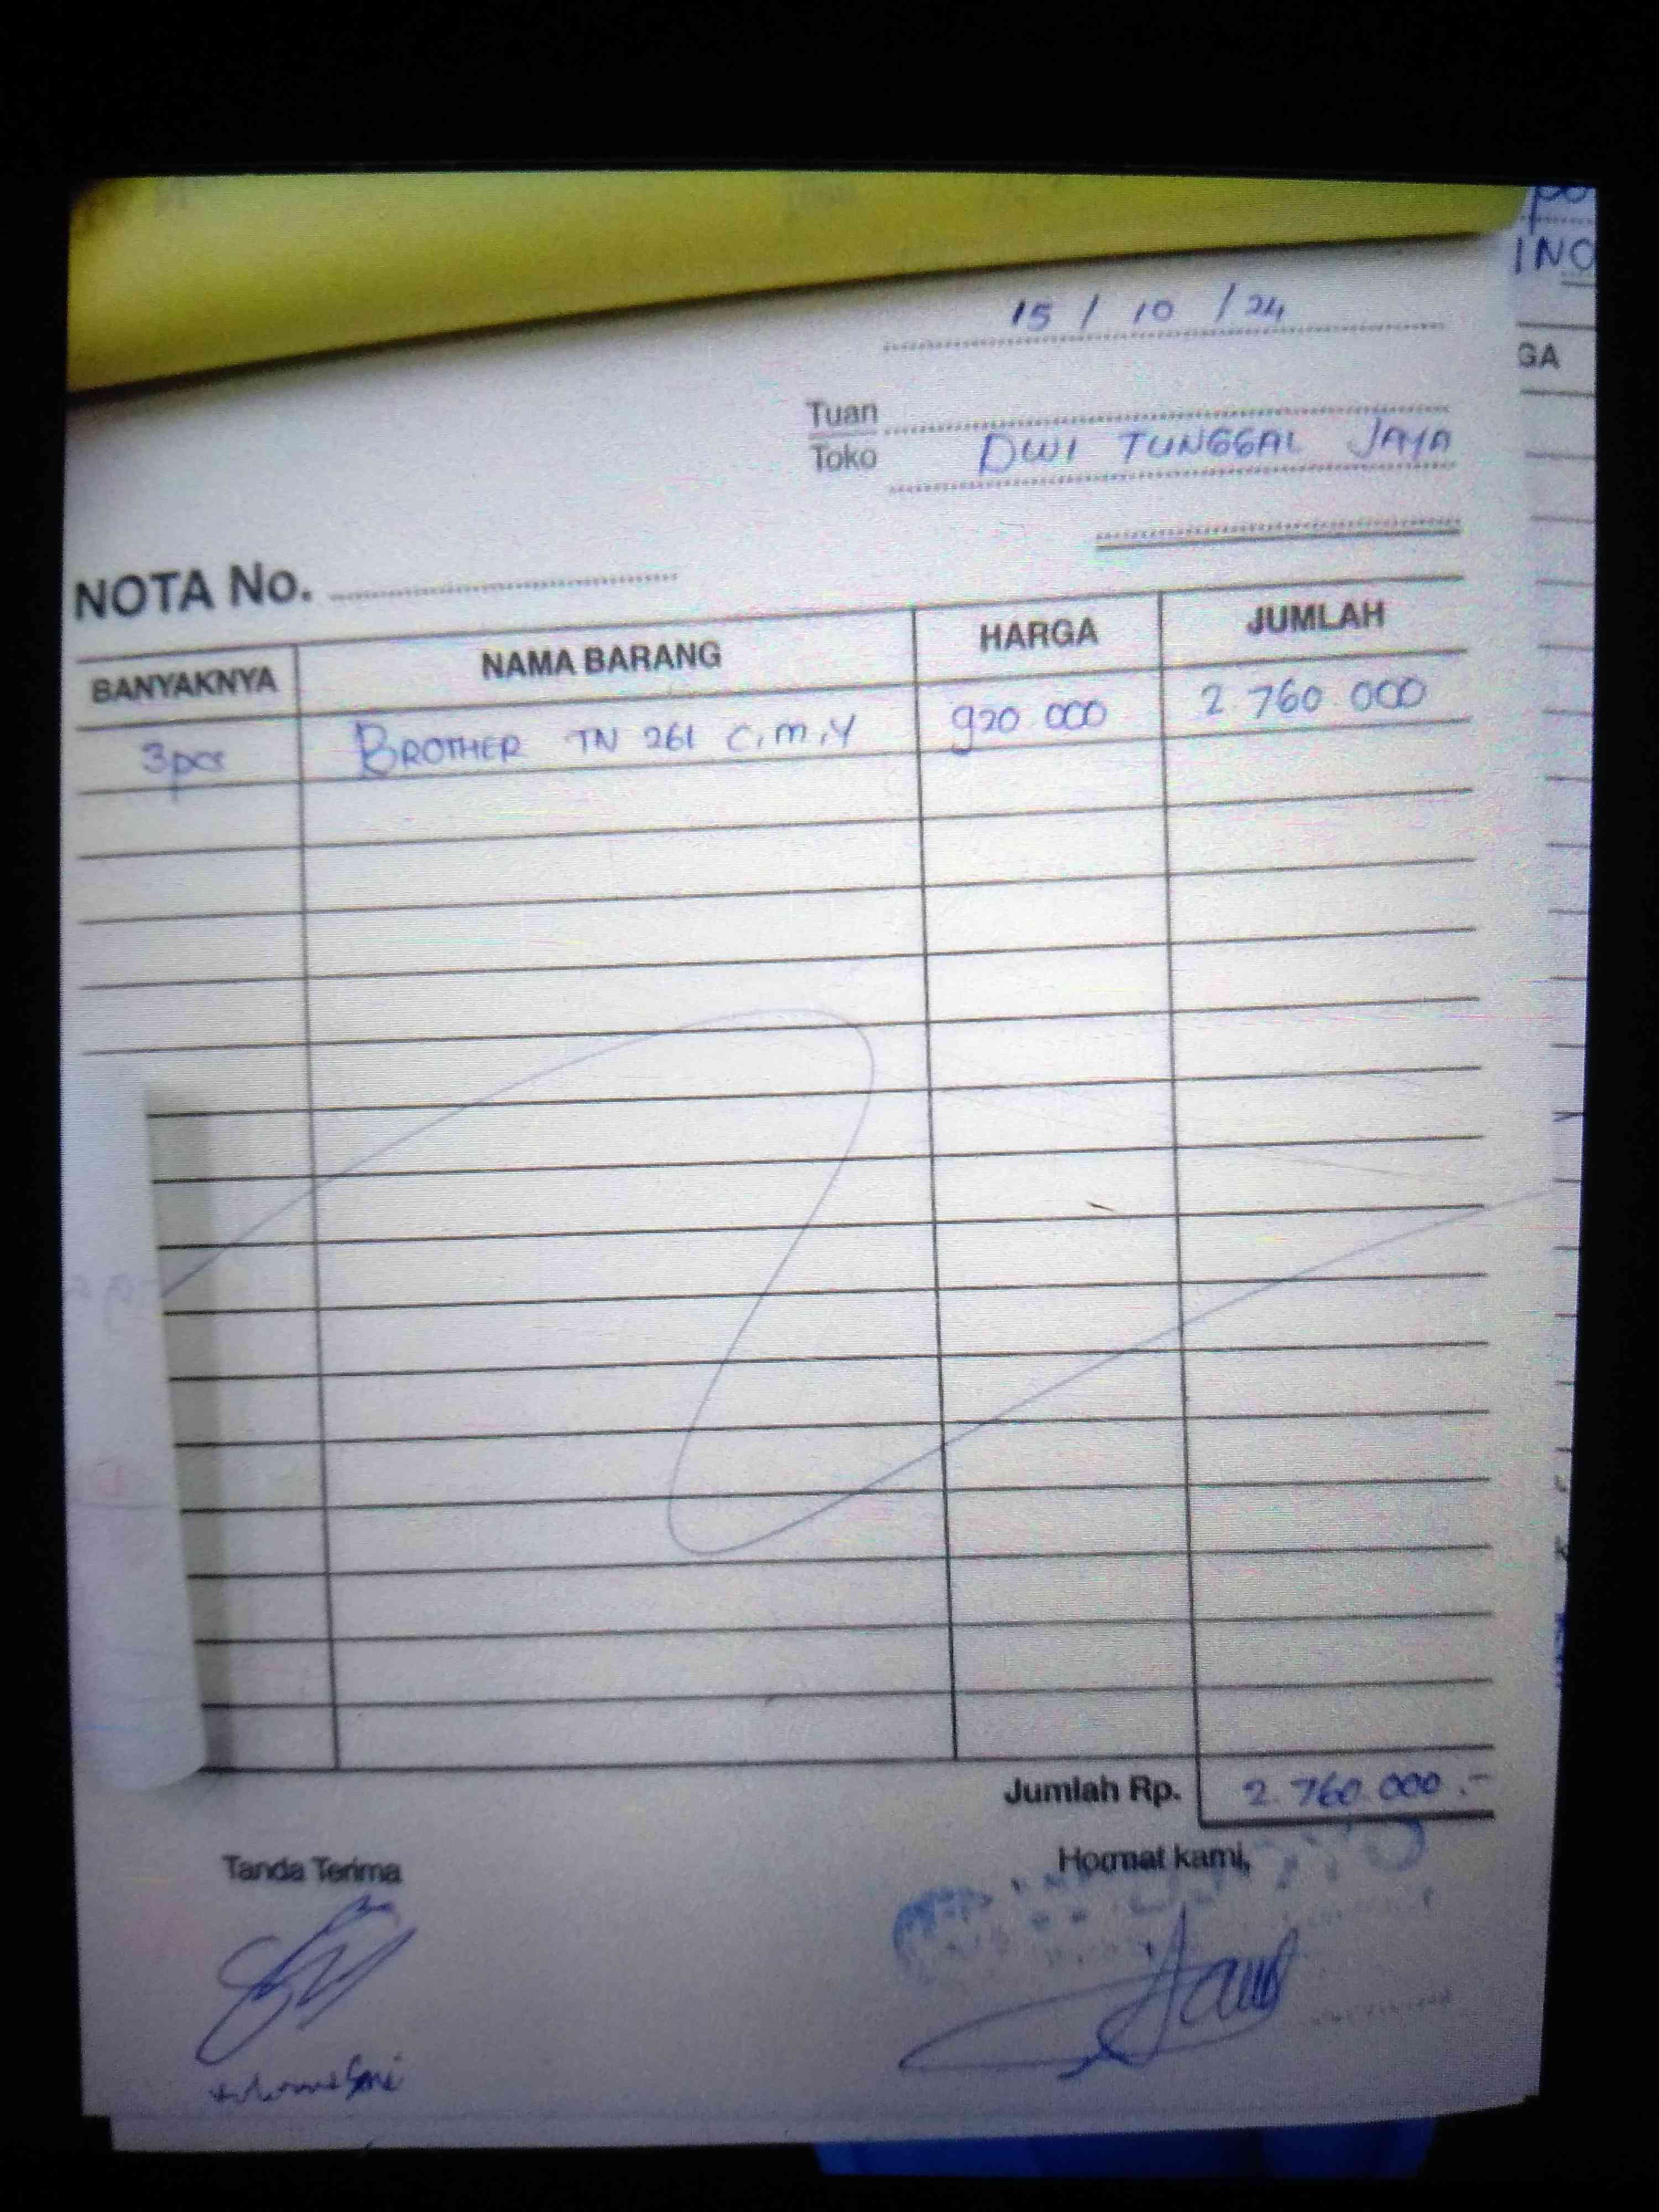 INO
15 / 10 / 24
GA
Tuan
Toko DWI TUNGGAL JAYA
NOTA No.
BANYAKNYA NAMA BARANG HARGA JUMLAH
3pcs BROTHER TN 261 C,M,Y 920 000 2 760 000
Jumlah Rp. 2.760.000.-
Tanda Terima Hormat kami,